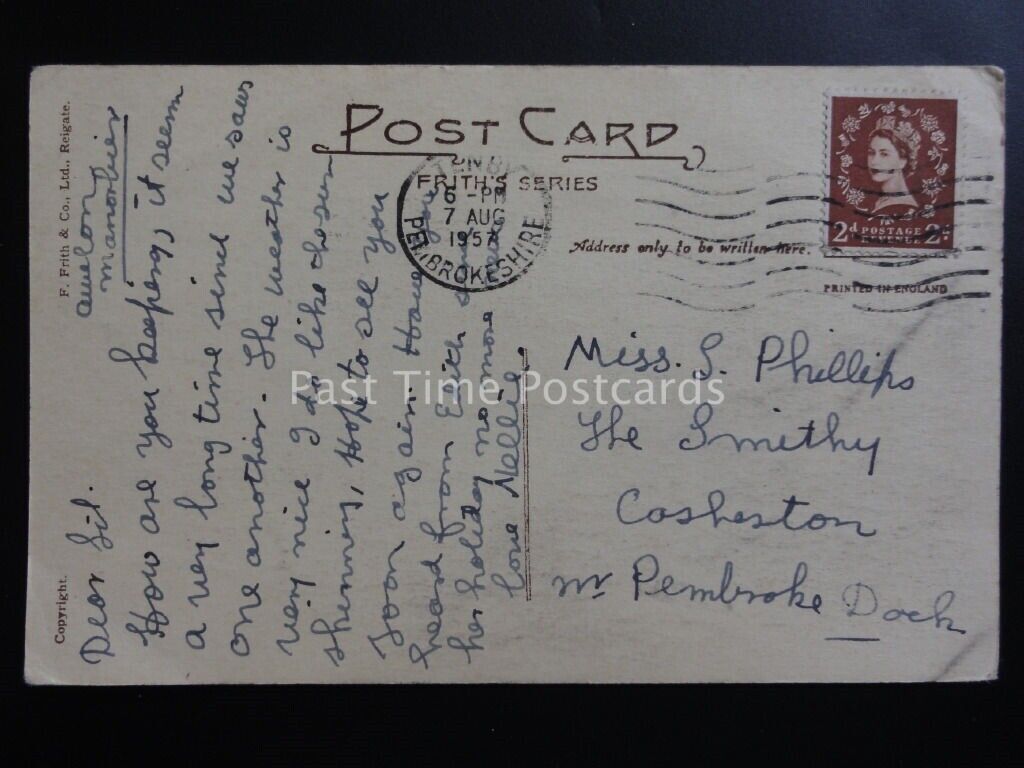 POST CARD
FRITH'S SERIES
Address only to be written here.
PRINTED IN ENGLAND
F. Frith & Co., Ltd., Reigate.
Copyright.
2d POSTAGE REVENUE 2d
6 - PM
7 AUG
1957
PEMBROKESHIRE
manorbier
Dear Sil.
How are you keeping, it seem
a very long time since we saw
one another. The weather is
very nice I do like the sun
shinning, Hope to see you
Soon again. Have you
heard from Edith
her holiday no more
love Nellie.
Miss. S. Phillips
The Smithy
Cosheston
Nr Pembroke Dock
Past Time Postcards